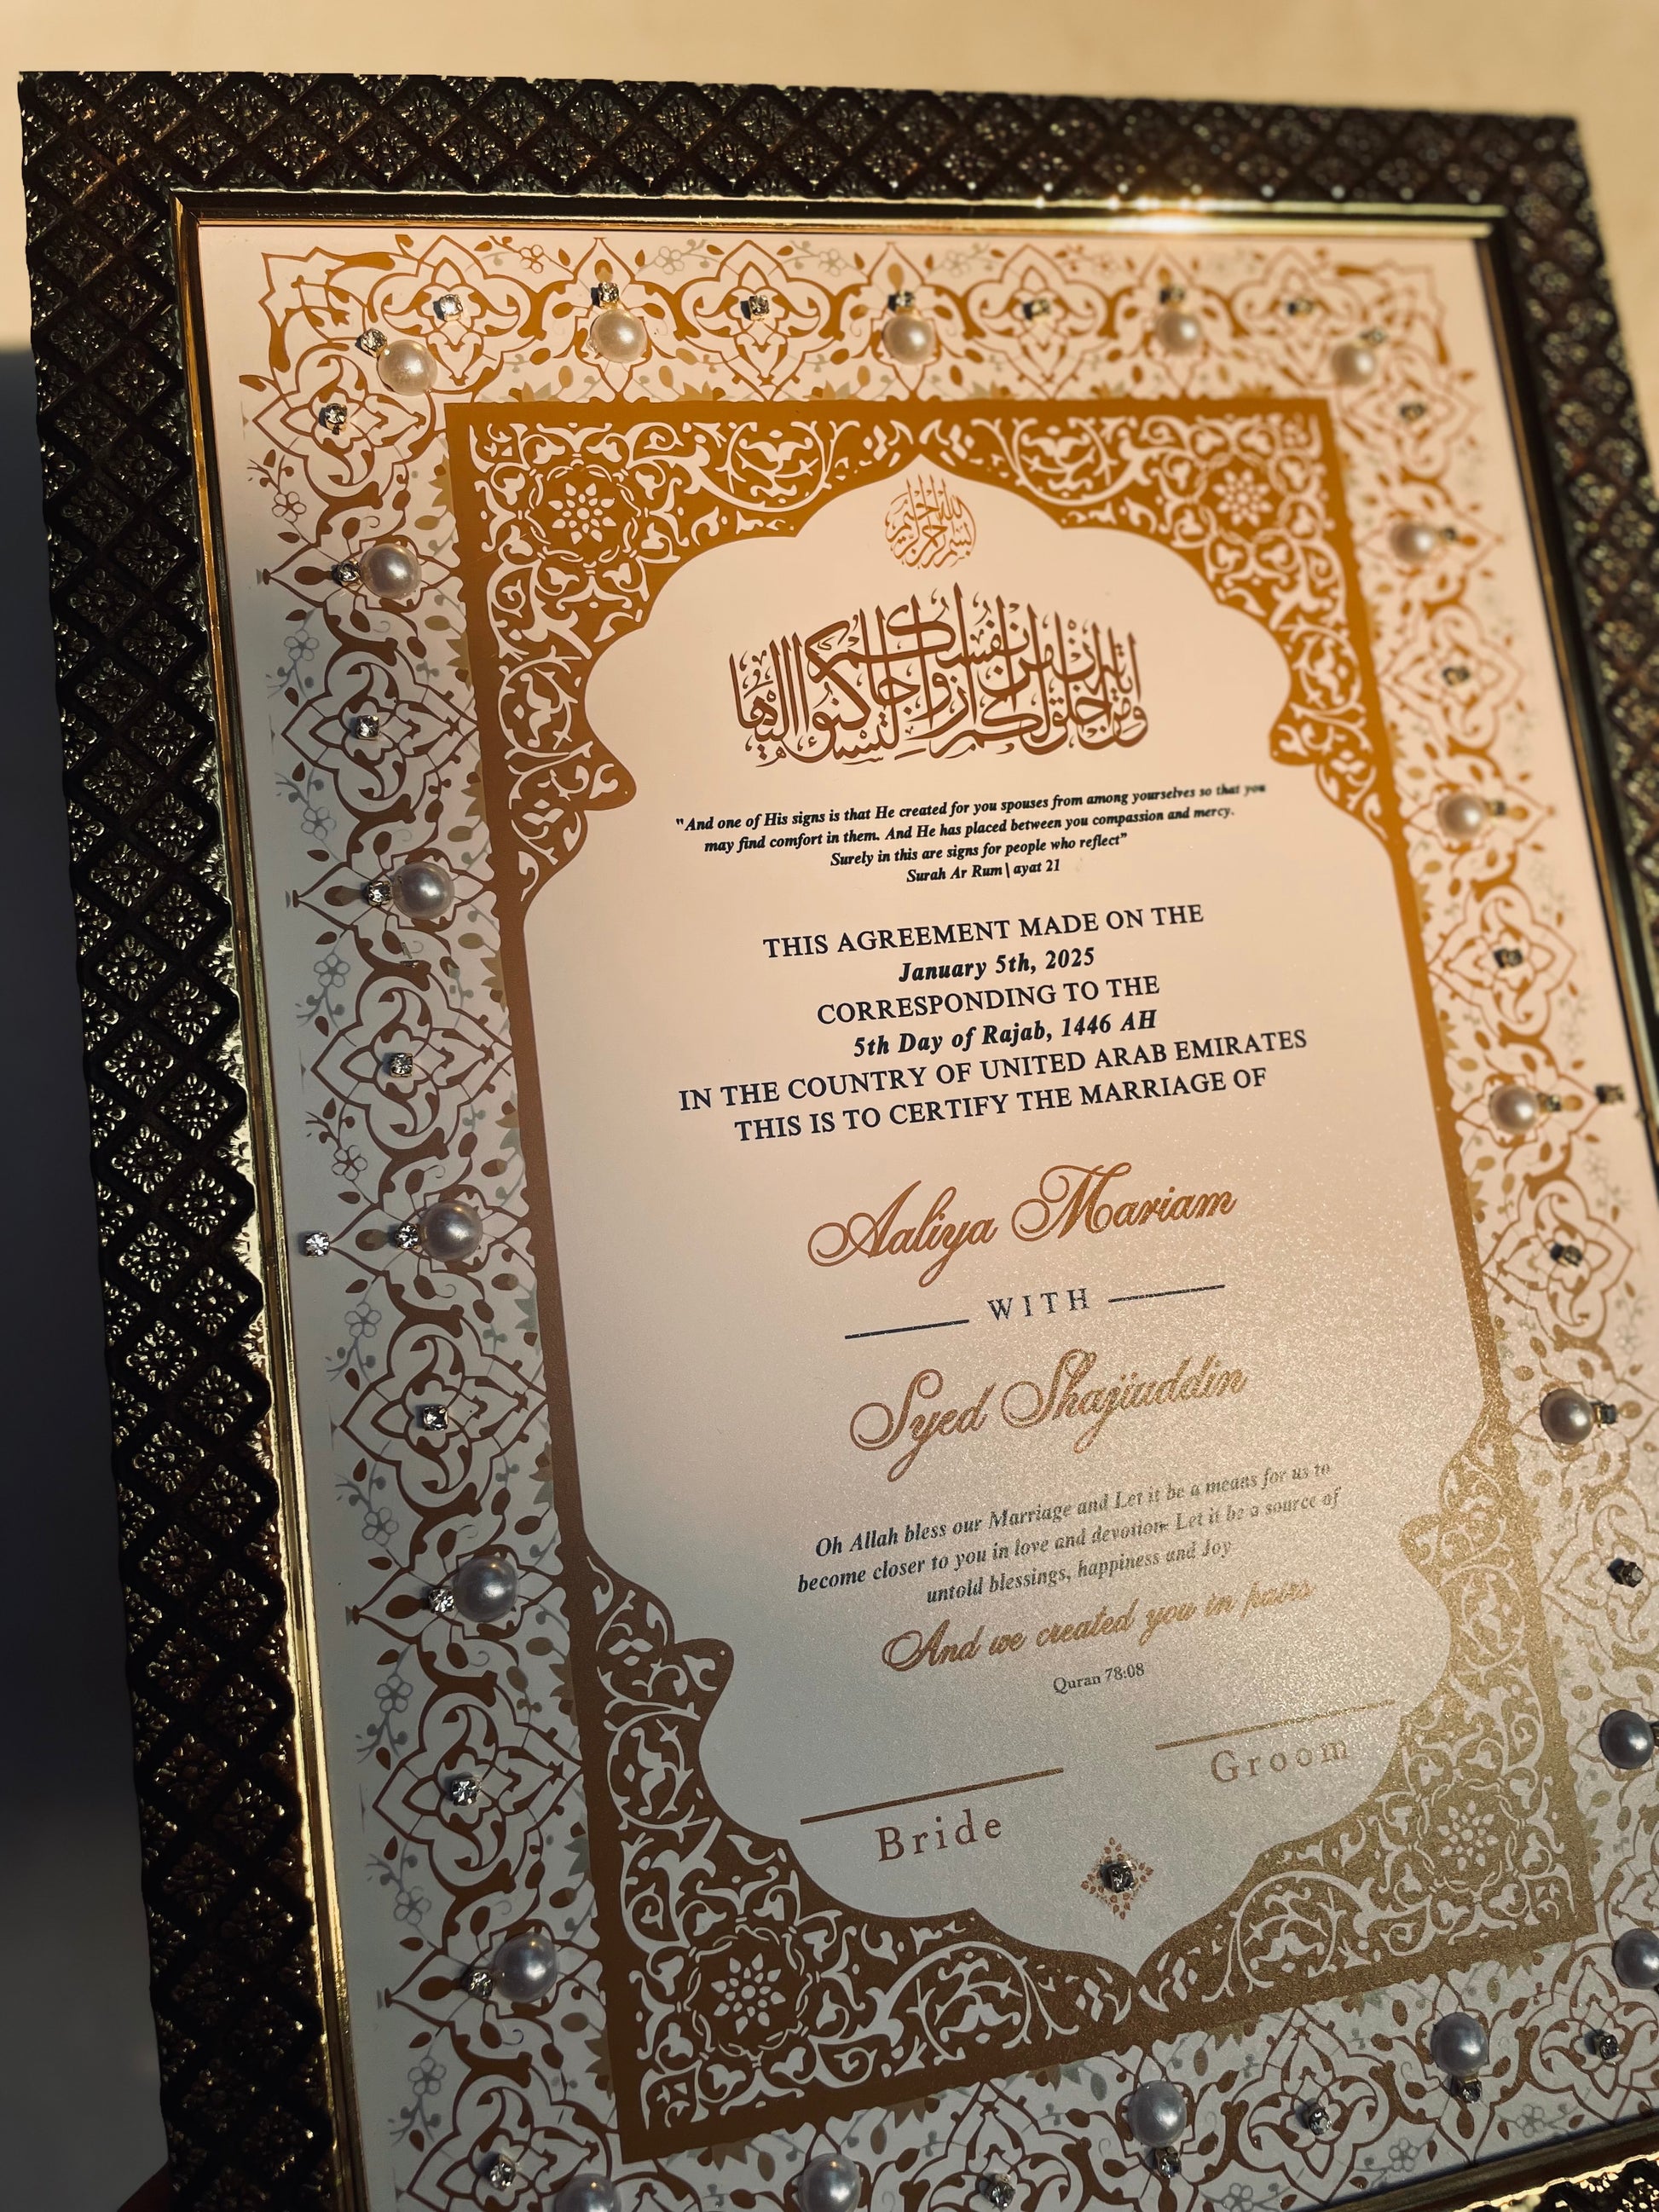 بسم الله الرحمن الرحيم
ومن آياته أن خلق لكم من أنفسكم أزواجا لتسكنوا إليها
"And one of His signs is that He created for you spouses from among yourselves so that you
may find comfort in them. And He has placed between you compassion and mercy.
Surely in this are signs for people who reflect”
Surah Ar Rum\ayat 21
THIS AGREEMENT MADE ON THE
January 5th, 2025
CORRESPONDING TO THE
5th Day of Rajab, 1446 AH
IN THE COUNTRY OF UNITED ARAB EMIRATES
THIS IS TO CERTIFY THE MARRIAGE OF
Aaliya Mariam
WITH
Syed Shajiuddin
Oh Allah bless our Marriage and Let it be a means for us to
become closer to you in love and devotion. Let it be a source of
untold blessings, happiness and Joy
And we created you in pairs
Quran 78:08
Bride
Groom